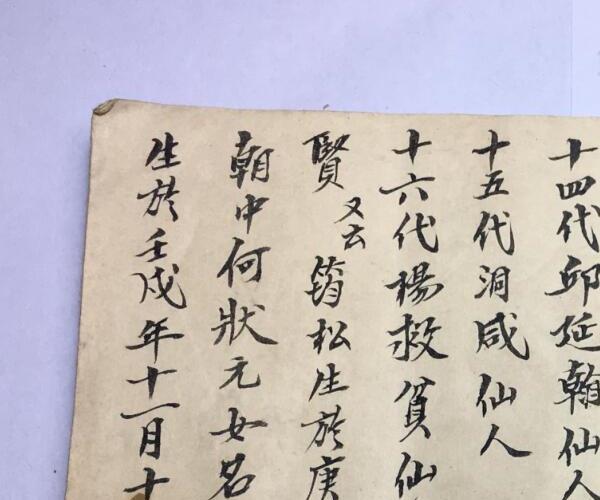 十四代邱延翰仙人
十五代洞咸仙人
十六代楊救貧仙
賢又云筠松生於庚
朝中何狀元女名
生於壬戌年十一月十